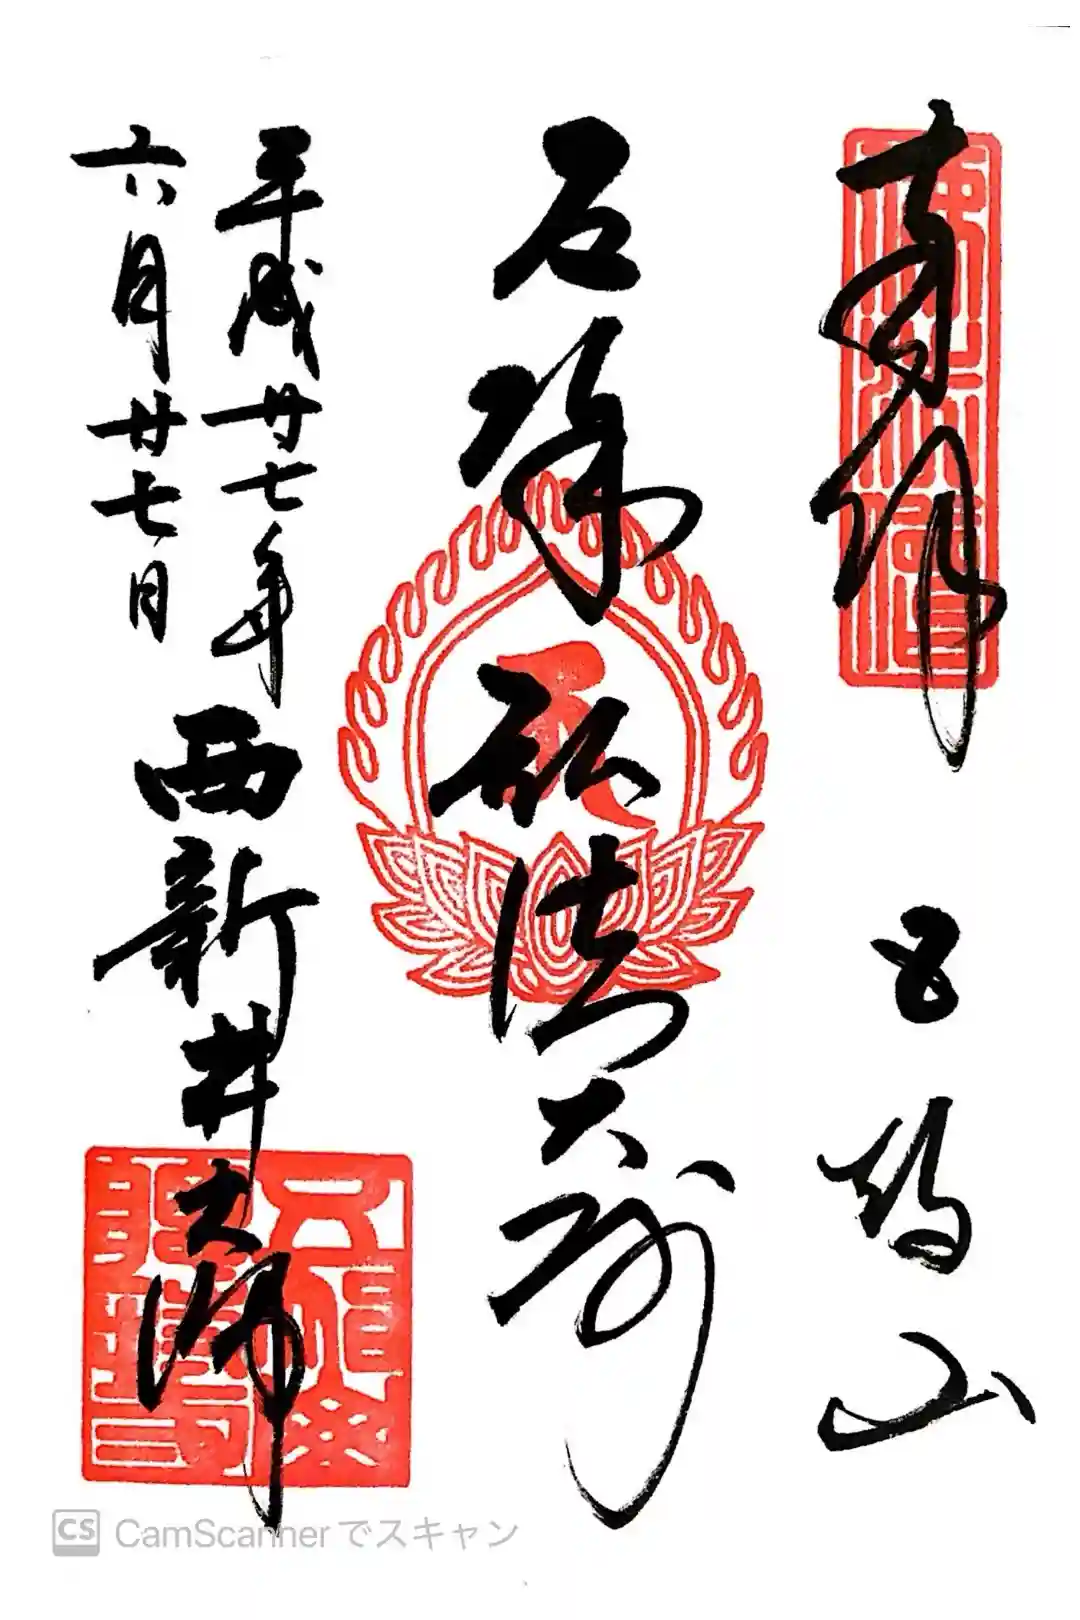 奉拝 五智山
厄除弘法大師
平成廿七年
六月廿七日
西新井大師
CS CamScannerでスキャン